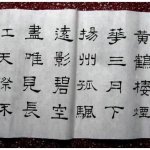 黃鶴樓煙
華三月下
揚州孤颿
遠影碧空
盡唯見長
江天際